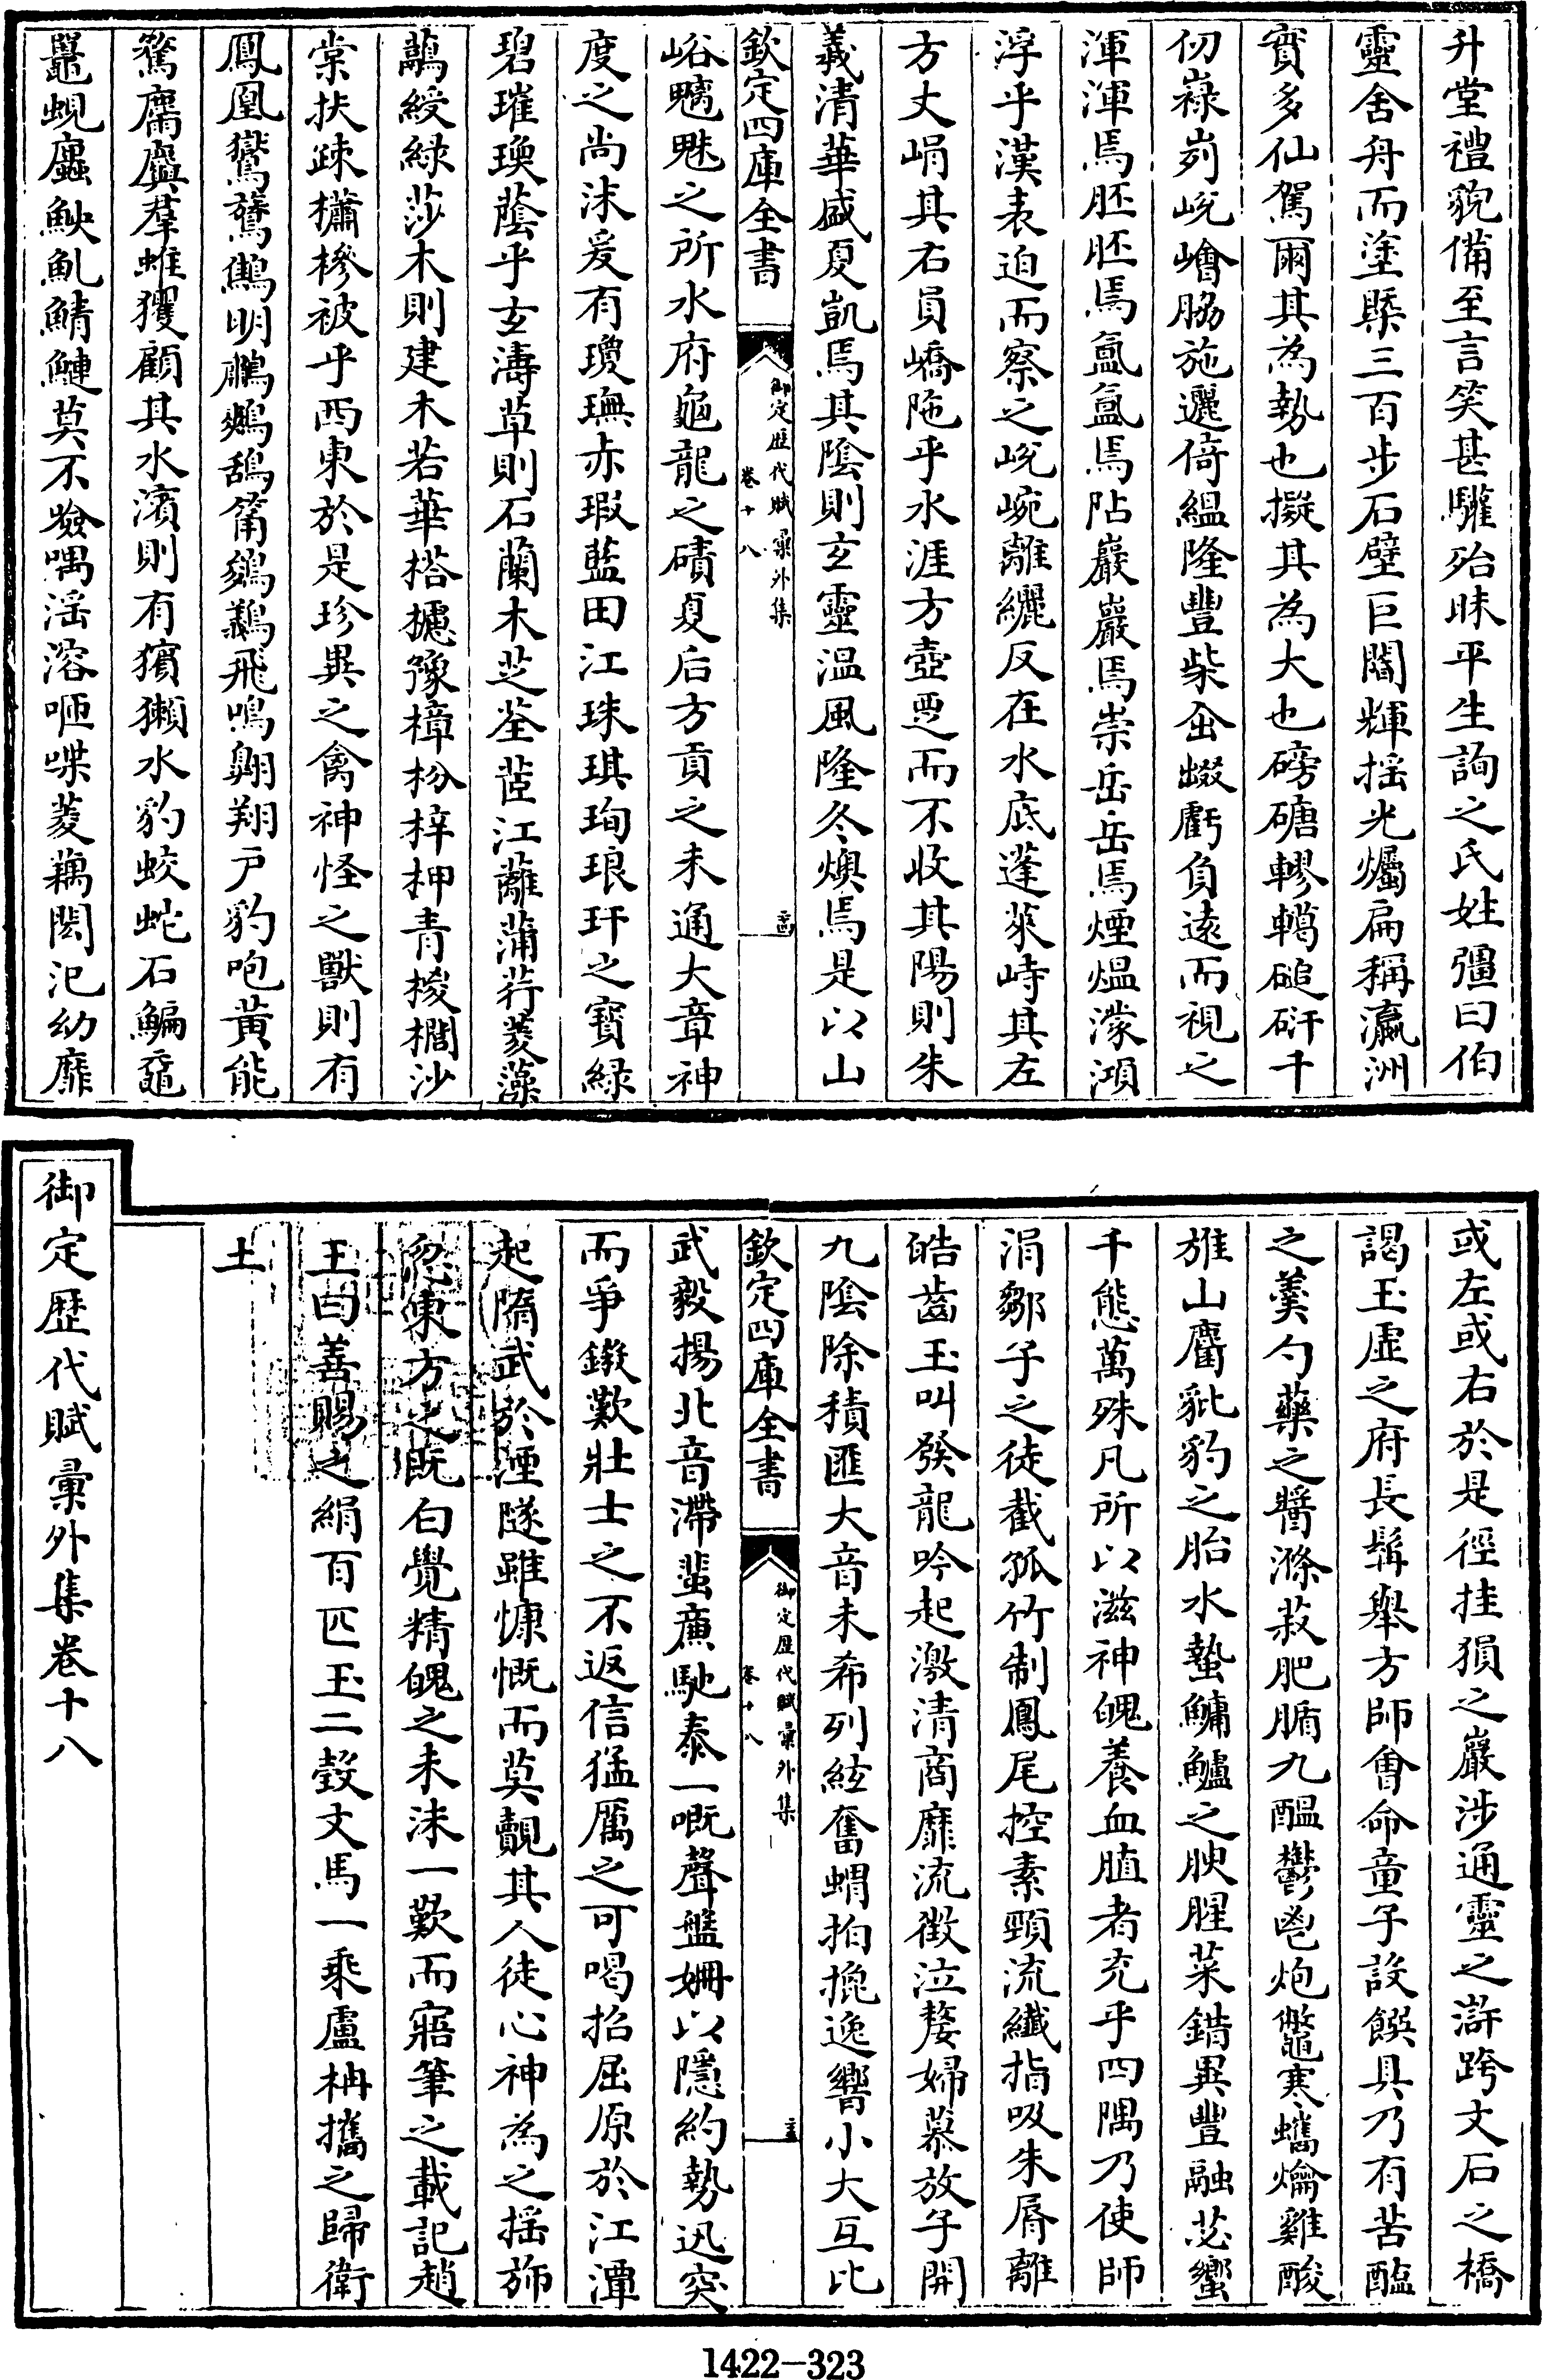 升堂禮貌備至言笑甚驩殆昧平生詢之氏姓彊曰伯
靈舍舟而塗縣三百步石壁巨闕輝搖光爥扁稱瀛洲
實多仙駕爾其為勢也擬其為大也磅磄轇轕磓矸千
仞嶪峛峣嶒脇施邐倚緼隆豐柴㟏嵏虧負遠而視之
渾渾焉胚胚焉氳氳焉阽巖巖焉崇岳岳焉煙煴濛澒
浮乎漢表迫而察之峣崥離纚反在水底蓬萊峙其左
方丈峭其右員嶠陁乎水涯方壺而不收其陽則朱
羲清華盛夏凱焉其陰則玄靈温風隆冬燠焉是以山
欽定四庫全書
御定歷代賦彙外集
卷十八
峪魑魅之所水府龜龍之磧夏后方貢之未通大章神
度之尚沬爰有瓊璑赤瑕藍田江珠琪珣琅玕之寶緑
碧璀瑛蔭乎玄濤草則石蘭木芝荃茝江蘺蒲荇菱藻
虉綬緑莎木則建木若華榙櫖豫樟枌梓柙青梭椆沙
棠扶疎橚槮被乎西東於是珍異之禽神怪之獸則有
鳳凰鸑鷟鷦明鵬鷃鴰鷄鵜飛鳴翺翔户豹咆黃能
鶩麢麌羣蜼玃顧其水濱則有獱獺水豹蛟蛇石鯿黿
鼉蜆蠯鮧魚鯖鰱莫不噞喁滛溶咂喋菱藕閎汜幼靡
或左或右於是徑挂猨之巖涉通靈之滸跨文石之橋
謁玉虛之府長髯舉方師會命童子設饌具乃有苦醢
之羹勺藥之醬滌菽肥腯九醖鬱鬯炮鼈寒蠵爚雞酸
旌山麛豼豹之胎水蟄鱅鱸之腴腥菜錯異豐融苾蠁
千態萬殊凡所以滋神魄養血䐈者充乎四隅乃使師
涓鄒子之徒截孤竹制鳳尾控素頸流纖指吸朱脣離
皓齒玉叫發龍吟起激清商靡流徵泣嫠婦慕放子開
九陰除積匪大音未希列絃奮蜎拍搊逸響小大互比
欽定四庫全書
御定歷代賦彙外集
卷十八
武毅揚北音滯蜚廉馳泰一嘅聲盤姍以隱約勢迅突
而爭鏾歎壯士之不返信猛厲之可喝招屈原於江潭
起隋武於湮隧雖慷慨而莫覿其人徒心神為之搖斾
忽東方之既白覺精魄之未沬一歎而寤筆之載記趙
王曰善賜之絹百匹玉二瑴文馬一乘盧枏攜之歸衛
土
御定歷代賦彙外集卷十八
1422-323